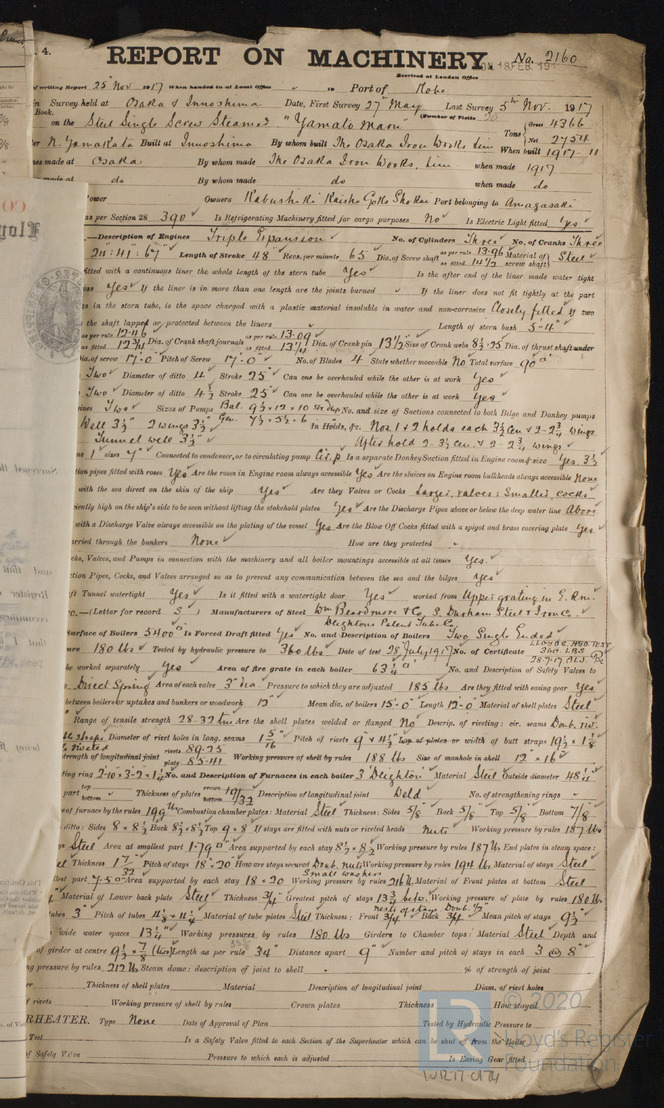 4. REPORT ON MACHINERY No. 2160
18 FEB. 191
Received at London Office
of writing Report 25 Nov 1917 When handed in at Local Office Port of Kobe
in Survey held at Osaka & Innoshima Date, First Survey 27 May Last Survey 5th Nov. 1917
Book. (Number of Visits
on the Steel Single Screw Steamer "Yamato Maru" Tons Gross 4366 Net 2754
N. Yamakata Built at Innoshima By whom built The Osaka Iron Works, Lim When built 1917-11
made at Osaka By whom made The Osaka Iron Works, Lim when made 1917
made at do By whom made do when made do
Power Owners Kabushiki Kaisha Port belonging to Amagasaki
as per Section 28 390 Is Refrigerating Machinery fitted for cargo purposes No Is Electric Light fitted Yes
—Description of Engines Triple Expansion No. of Cylinders Three No. of Cranks Three
24": 41": 67" Length of Stroke 48" Revs. per minute 65 Dia. of Screw shaft as per rule 13.96 as fitted 14 1/2 Material of screw shaft Steel
fitted with a continuous liner the whole length of the stern tube Yes Is the after end of the liner made water tight
Yes If the liner is in more than one length are the joints burned If the liner does not fit tightly at the part
in the stern tube, is the space charged with a plastic material insoluble in water and non-corrosive Closely fitted If two
the shaft lapped or protected between the liners Length of stern bush 5'-4"
as per rule 12.46 Dia. of Crank shaft journals as per rule 13.09 Dia. of Crank pin 13 1/2" Size of Crank webs 8 1/2 · 25 Dia. of thrust shaft under
Dia. of screw 17'-0" Pitch of Screw 17'-0" No. of Blades 4 State whether moveable No Total surface 90
Two Diameter of ditto 4" Stroke 25" Can one be overhauled while the other is at work Yes
Two Diameter of ditto 4 1/2 Stroke 25" Can one be overhauled while the other is at work Yes
Two Sizes of Pumps Bal. 9 1/2 × 12 × 10 No. and size of Suctions connected to both Bilge and Donkey pumps
Well 3 1/2" 2 wings 3 1/2" Gen. 7 1/2 · 5 1/2 · 6 In Holds, &c. Nos 1 & 2 holds each 3 1/2 cen. & 2-2 3/4 wings
Tunnel well 3 1/2" After hold 2-3 1/2 cen. & 2-2 3/4 wings
1 sizes 7" Connected to condenser, or to circulating pump Cir. p Is a separate Donkey Suction fitted in Engine room & size Yes 3 1/2
tion pipes fitted with roses Yes Are the roses in Engine room always accessible Yes Are the sluices on Engine room bulkheads always accessible None
with the sea direct on the skin of the ship Yes Are they Valves or Cocks Larger, valves: Smaller, cocks
ficiently high on the ship's side to be seen without lifting the stokehold plates Yes Are the Discharge Pipes above or below the deep water line Above
with a Discharge Valve always accessible on the plating of the vessel Yes Are the Blow Off Cocks fitted with a spigot and brass covering plate Yes
carried through the bunkers None How are they protected
ocks, Valves, and Pumps in connection with the machinery and all boiler mountings accessible at all times Yes.
ction Pipes, Cocks, and Valves arranged so as to prevent any communication between the sea and the bilges Yes
Tunnel watertight Yes Is it fitted with a watertight door Yes worked from Upper grating in E. Rm.
&c.—(Letter for record S ) Manufacturers of Steel Wm Beardmore & Co, S. Durham Steel & Iron Co.
Deightons Patent Tube Co.
Surface of Boilers 5400 Is Forced Draft fitted Yes No. and Description of Boilers Two Single Ended
LLOYD'S HYD. TEST
180 lbs Tested by hydraulic pressure to 360 lbs Date of test 28 July, 1917 No. of Certificate 360 LBS
28.7.17
be worked separately Yes Area of fire grate in each boiler 63 1/4 No. and Description of Safety Valves to
Direct Spring Area of each valve 3" dia Pressure to which they are adjusted 185 lbs Are they fitted with easing gear Yes
between boilers or uptakes and bunkers or woodwork 12" Mean dia. of boilers 15'-0" Length 12'-0 Material of shell plates Steel
Range of tensile strength 28-32 tons Are the shell plates welded or flanged No Descrip. of riveting: cir. seams Doub. riv.
Diameter of rivet holes in long. seams 1 5/16 Pitch of rivets 9" Lap of plates or width of butt straps 19 1/2 × 1 1/8
riveted rivets 89.25
strength of longitudinal joint plate 85.41 Working pressure of shell by rules 188 lbs Size of manhole in shell 12" × 16"
No. and Description of Furnaces in each boiler 3 Deighton Material Steel Outside diameter 48 1/4"
part top bottom Thickness of plates crown bottom 19/32 Description of longitudinal joint Weld No. of strengthening rings
of furnace by the rules 199 lbs Combustion chamber plates: Material Steel Thickness: Sides 5/8" Back 5/8" Top 5/8" Bottom 7/8"
ditto: Sides 8 × 8 1/2 Back 8 1/2 × 8 1/2 Top 9 × 8 If stays are fitted with nuts or riveted heads Nuts Working pressure by rules 187 lbs
Steel Area at smallest part 1.79 Area supported by each stay 8 1/2 × 8 1/2 Working pressure by rules 187 lbs End plates in steam space:
Steel Thickness 1 7/32 Pitch of stays 18" × 20" How are stays secured Doub. nuts Working pressure by rules 194 lbs Material of stays Steel
Small washers
smallest part 7.5 Area supported by each stay 18 × 20 Working pressure by rules 216 lbs Material of Front plates at bottom Steel
Material of Lower back plate Steel Thickness 3/4" Greatest pitch of stays 13 3/4 Working pressure of plate by rules 180 lbs
tubes 3" Pitch of tubes Material of tube plates Steel Thickness: Front 3/4" Back 3/4" Mean pitch of stays 9 1/2
wide water spaces 13 1/4" Working pressures by rules 180 lbs Girders to Chamber tops: Material Steel Depth and
of girder at centre 9 1/2 × 7/8 (two) Length as per rule 34" Distance apart 9" Number and pitch of stays in each 3 @ 8"
Working pressure by rules 212 lbs Steam dome: description of joint to shell % of strength of joint
Thickness of shell plates Material Description of longitudinal joint Diam. of rivet holes
of rivets Working pressure of shell by rules Crown plates Thickness How stayed
RHEATER. Type None Date of Approval of Plan Tested by Hydraulic Pressure to
Test Is a Safety Valve fitted to each Section of the Superheater which can be shut off from the Boiler
of Safety Valve Pressure to which each is adjusted Is Easing Gear fitted
LR © 2020 Lloyd's Register Foundation